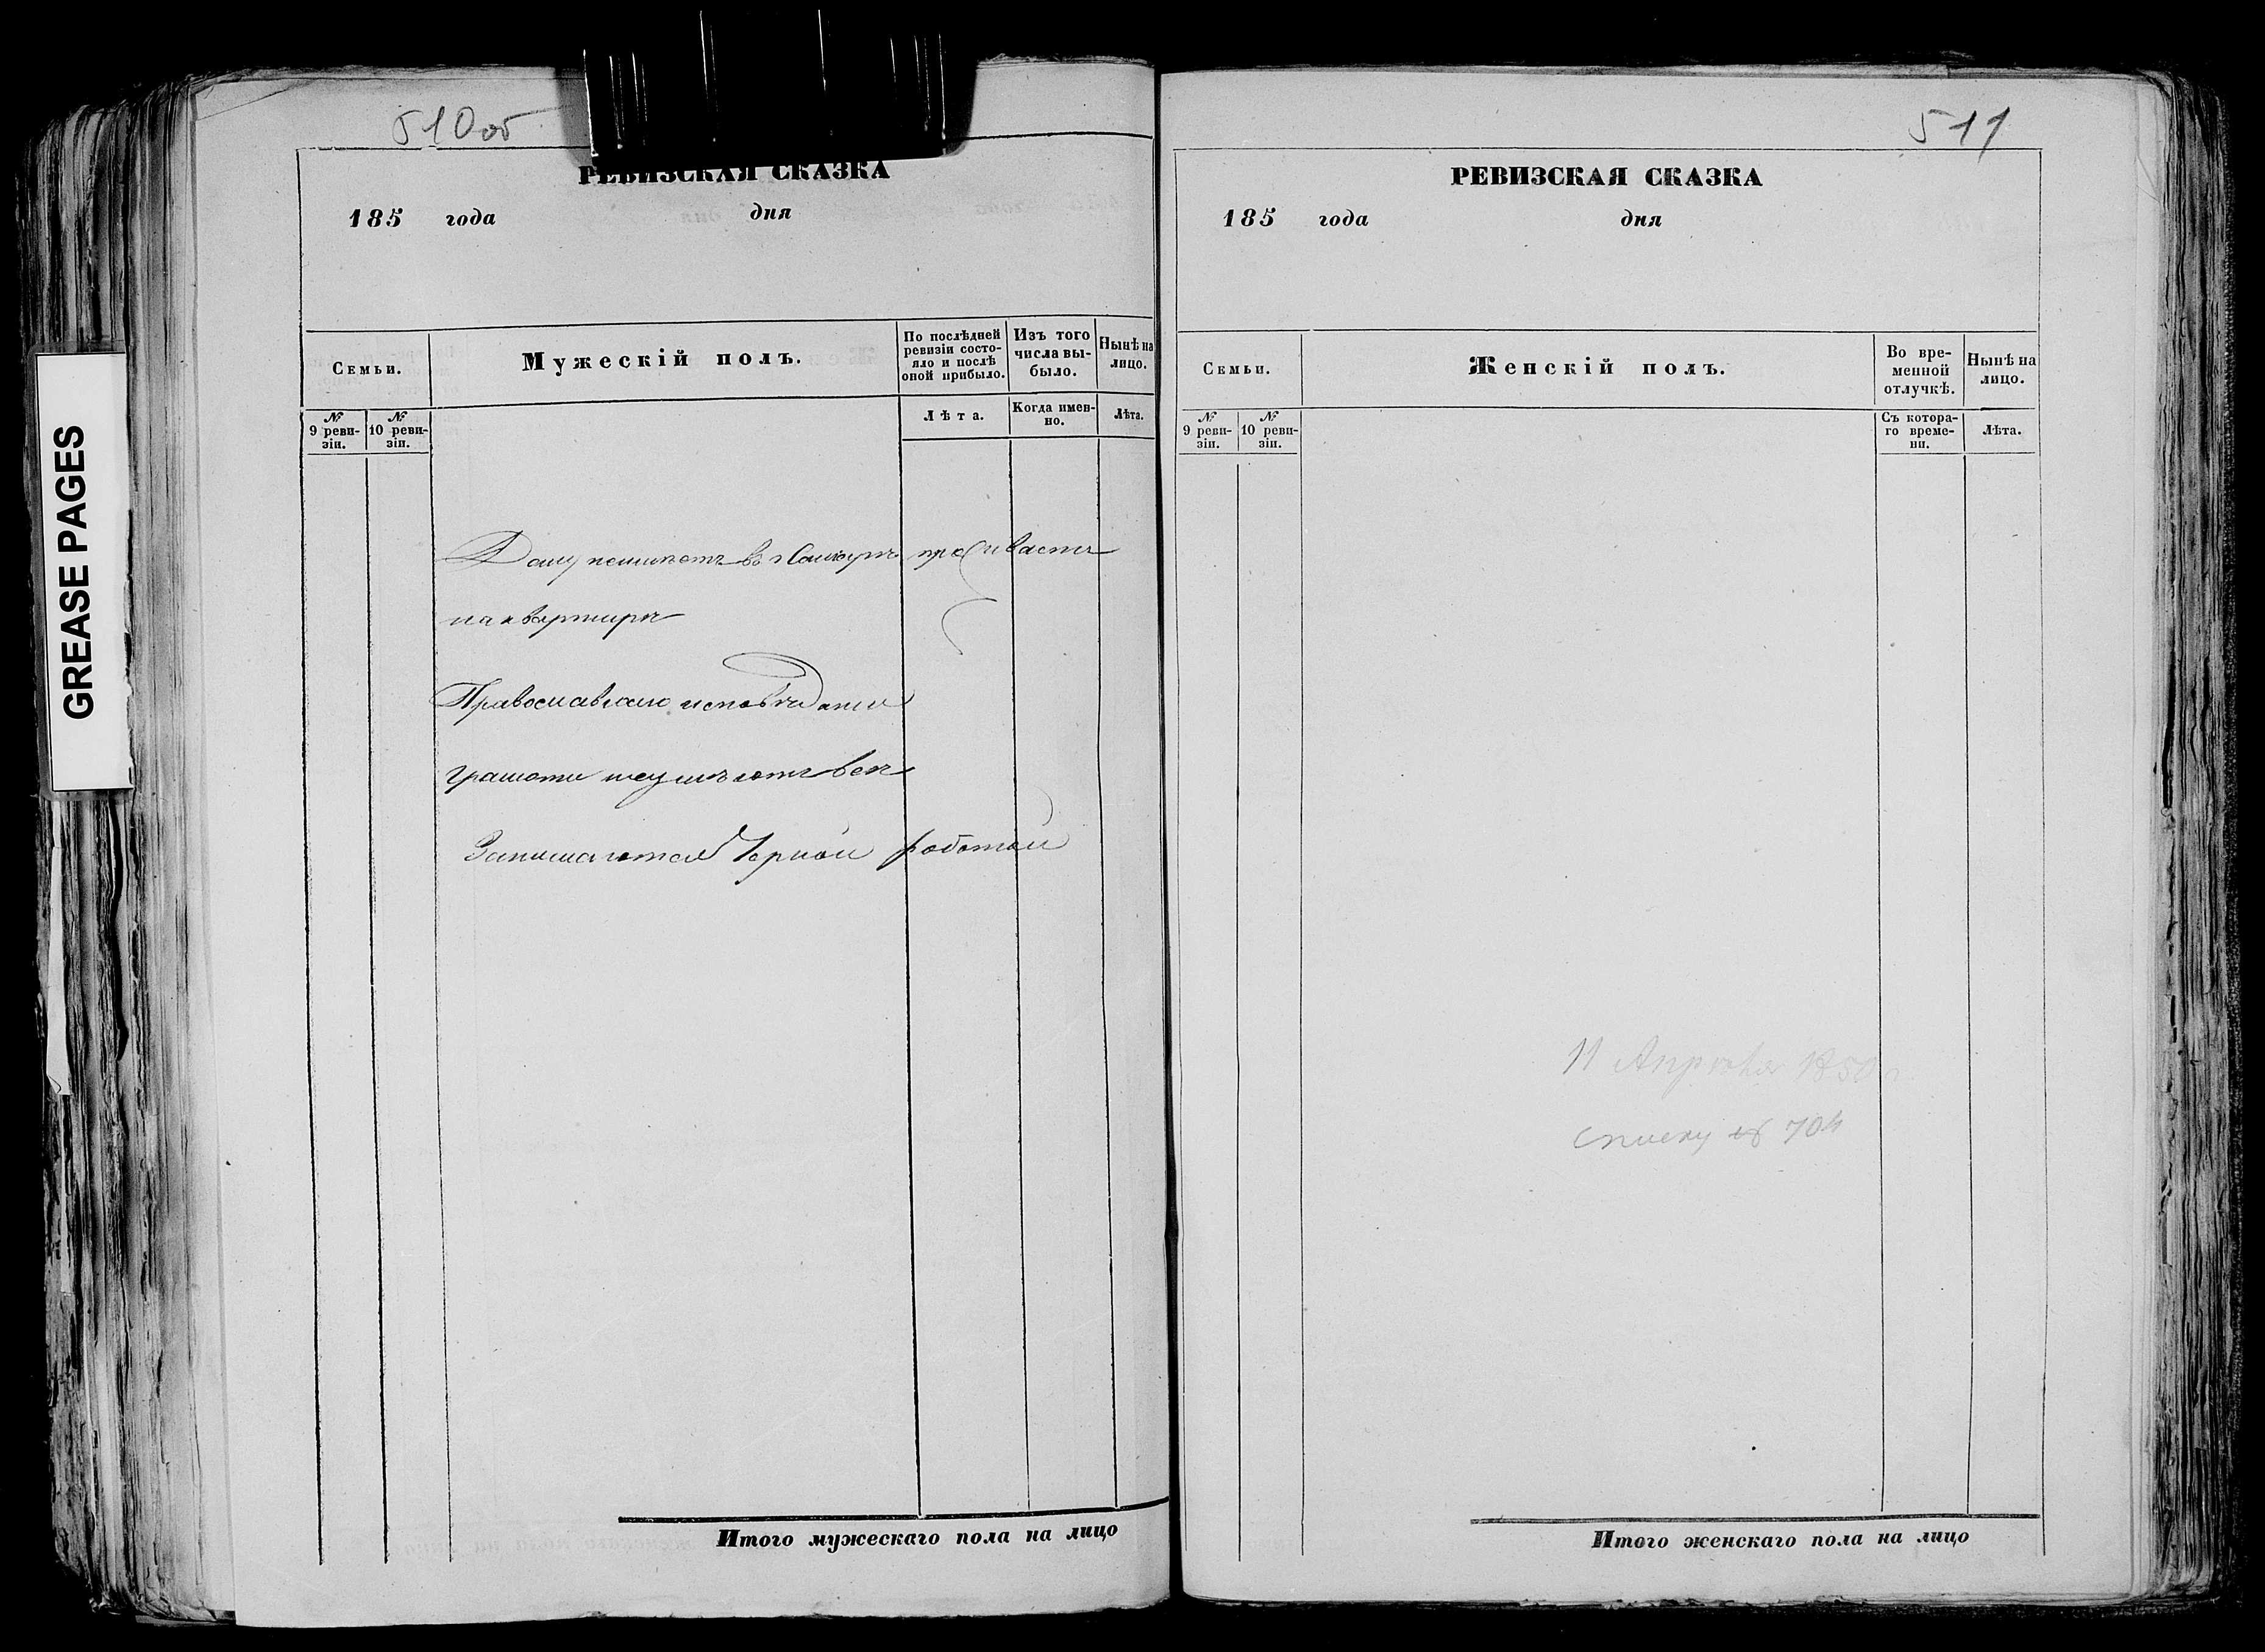 GREASE PAGES
510об
РЕВИЗСКАЯ СКАЗКА
185 года дня
Семьи.
Мужескій полъ.
По послѣдней ревизіи состояло и послѣ оной прибыло.
Изъ того числа выбыло.
Нынѣ на лицо.
№ 9 ревизіи.
№ 10 ревизіи.
Лѣта.
Когда именно.
Лѣта.
Дому неимѣетъ в проживаетъ
на квартирѣ
Православнаго исповѣдания
грамоти неумѣютъ
Занимаются Чорной работой
Итого мужескаго пола на лицо
511
РЕВИЗСКАЯ СКАЗКА
185 года дня
Семьи.
Женскій полъ.
Во временной отлучкѣ.
Нынѣ на лицо.
№ 9 ревизіи.
№ 10 ревизіи.
Съ котораго времени.
Лѣта.
11 Апрѣля
списку № 704
Итого женскаго пола на лицо